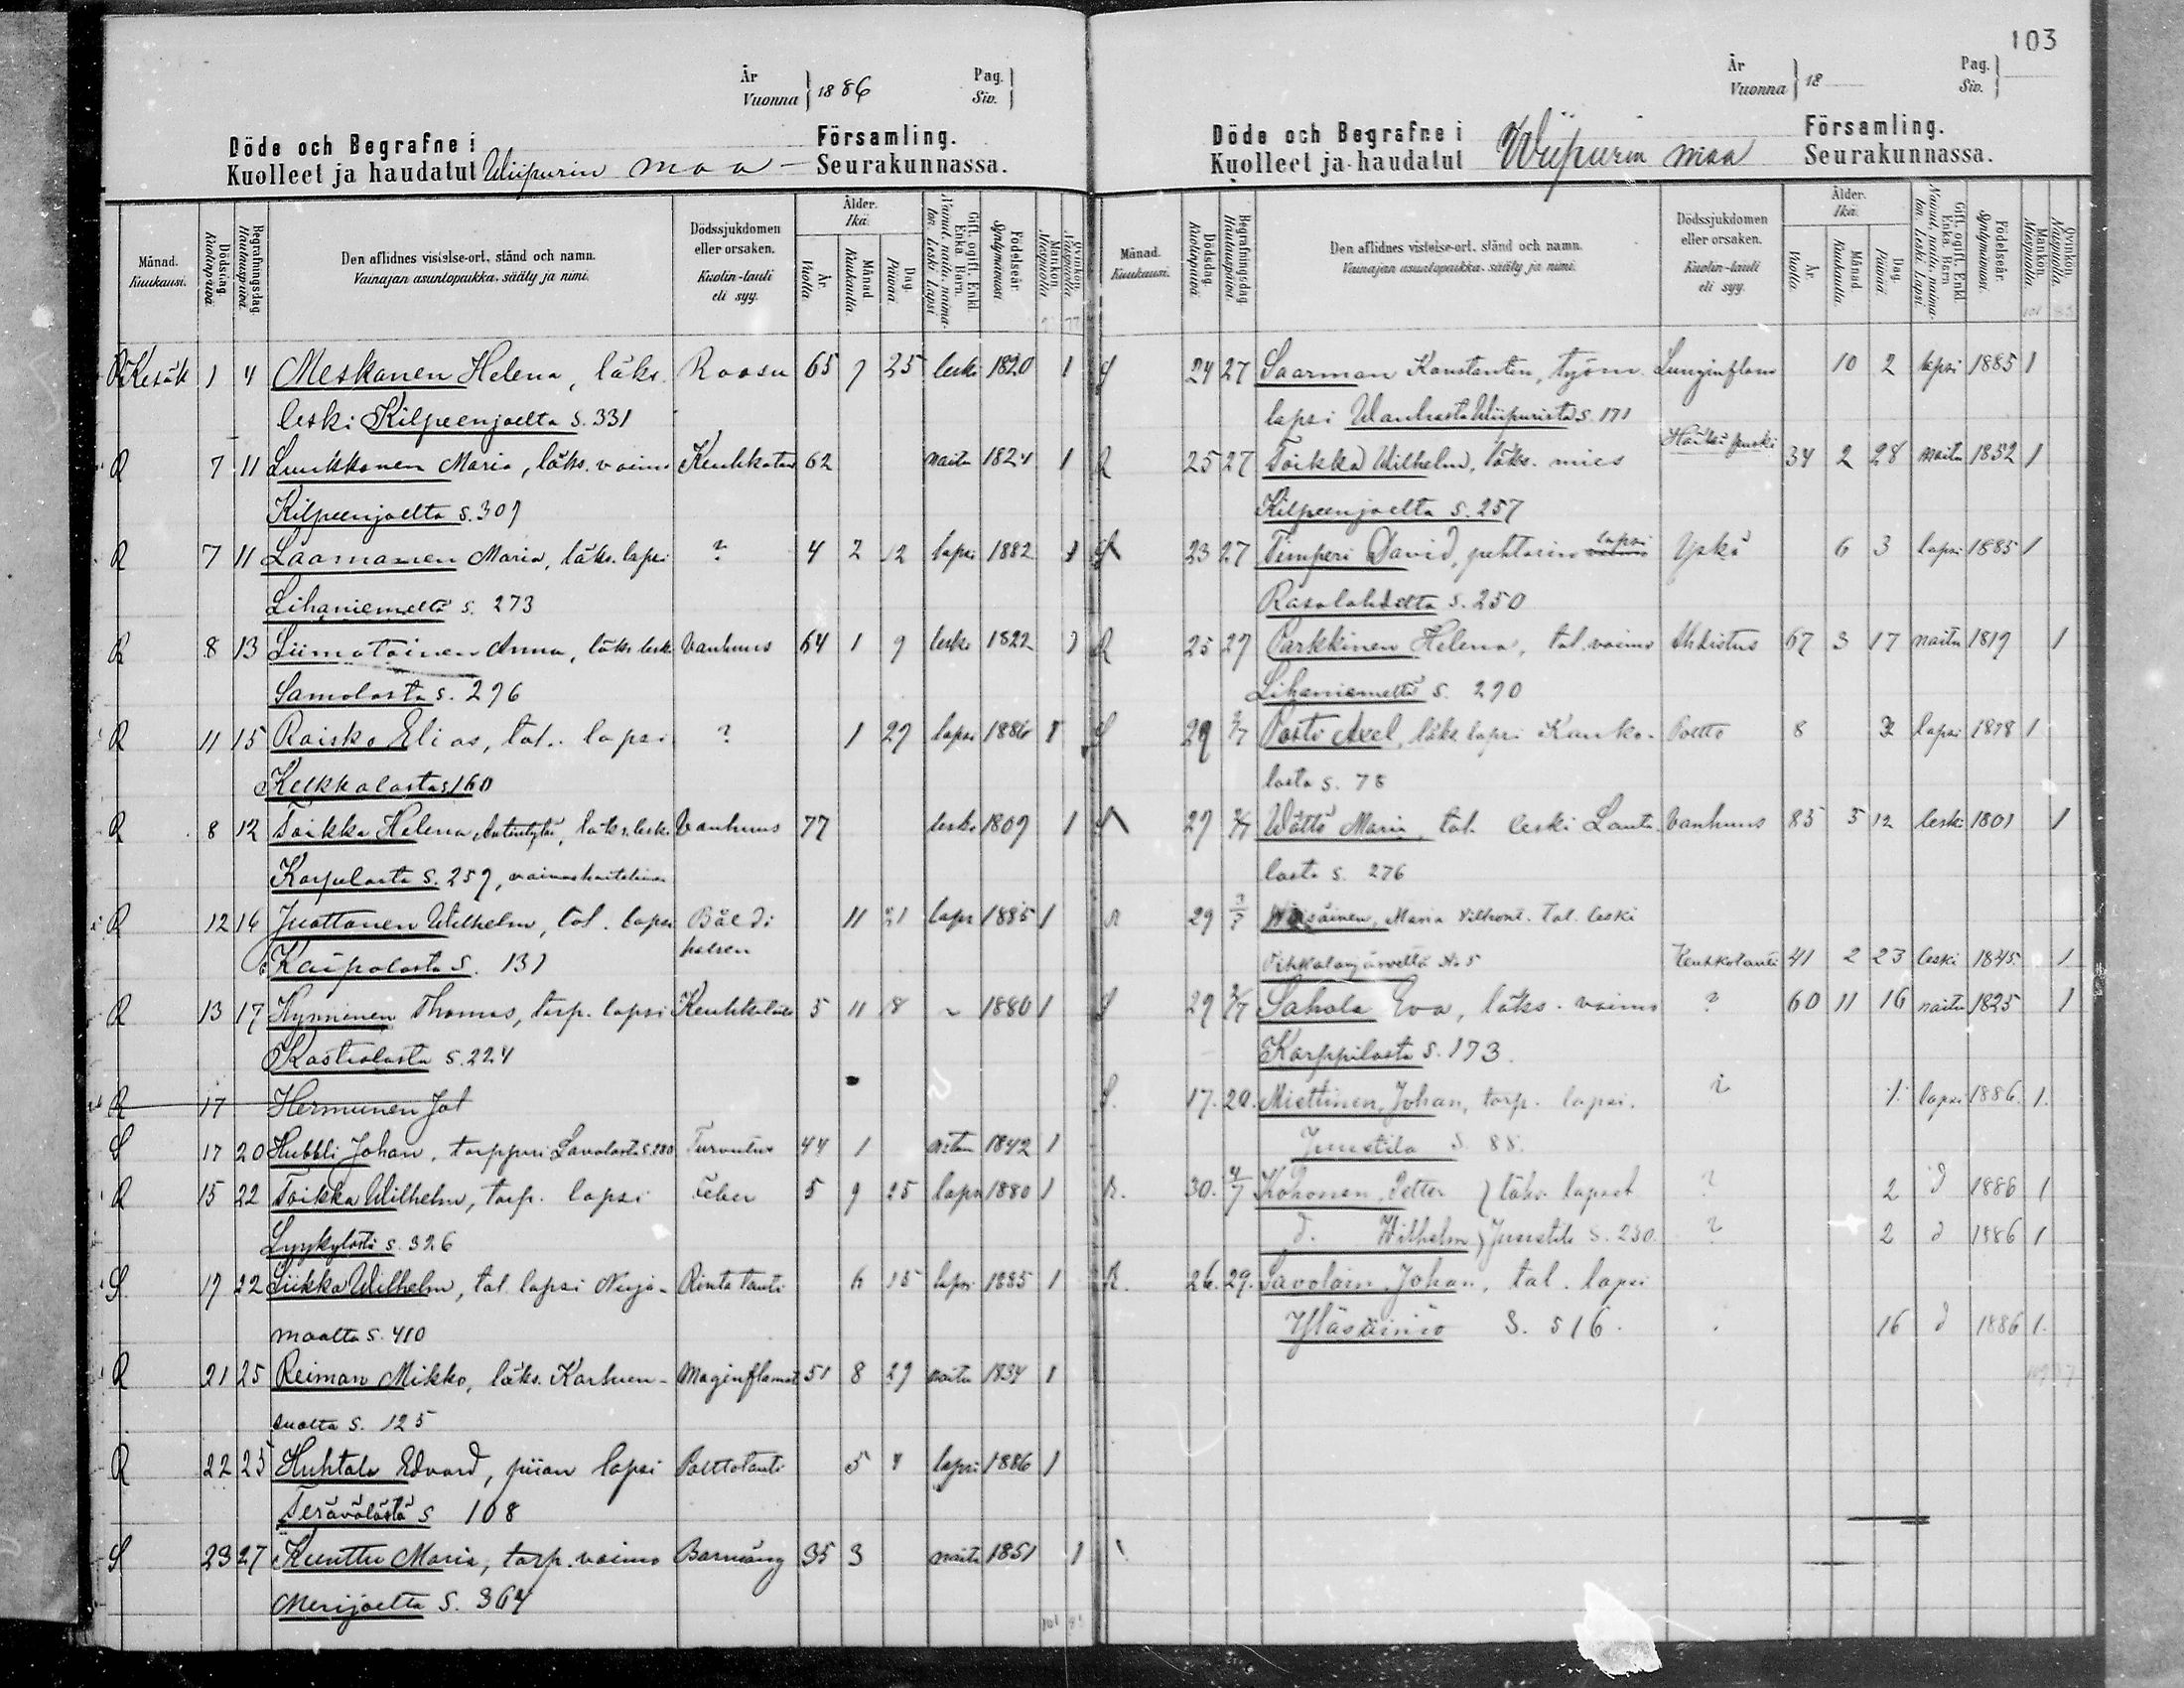 103
År
Vuonna } 1886
Pag.
Siv.
Döde och Begrafne i Församling.
Kuolleet ja haudatut Wiipurin maa - Seurakunnassa.
Månad.
Kuukausi.
Dödsdag.
Kuolinpäivä.
Begrafningsdag.
Hautauspäivä.
Den aflidnes vistelse-ort, stånd och namn.
Vainajan asuntopaikka, sääty ja nimi.
Dödssjukdomen
eller orsaken.
Kuolin-tauti
eli syy.
Ålder.
Ikä.
År.
Vuotta.
Månad.
Kuukautta.
Dag.
Päivää.
Gift, ogift, Enkl.
Enka, Barn.
Nainut, naitu, naima-
ton, Leski, Lapsi
Födelseår.
Syntymävuosi.
Mankön.
Miespuolia
Qvinkön.
Naispuolia
R Kesäk 1 4 Meskanen Helena, läks. Roosu 65 7 25 leski 1820 1
leski Kilpeenjoelta S. 331
R 7 11 Luukkonen Maria, läks. vaimo Keuhkotau 62 naitu 1824 1
Kilpeenjoelta S. 307
R 7 11 Laamanen Maria, läks. lapsi ? 4 2 12 lapsi 1882 1
Lihaniemeltä S. 273
R 8 13 Liimatainen Anna, läks. lesk. Vanhuus 64 1 9 leski 1822 1
Samolasta S. 296
R 11 15 Raisko Elias, tal. lapsi ? 1 27 lapsi 1886 1
Kelkkalasta S. 160
R 8 12 Toikka Helena Antintytär, läks. lesk. Vanhuus 77 leski 1809 1
Karpulasta S. 259, vaivashoitolainen
R 12 16 Juottonen Wilhelm, tal. lapsi 11 21 laps 1885 1
Kaipolasta S. 131
R 13 17 Kynninen Thomas, torp. lapsi Keuhkotau 5 11 8 " 1880 1
Kostialasta S. 224
R 17 Hermunen Joh
S 17 20 Hubbli Johan, torppari Savolasta S. 280 Turvutus 44 1 naitu 1842 1
R 15 22 Toikka Wilhelm, torp. lapsi Feber 5 9 25 laps 1880 1
Lyykylästä S. 326
S 17 22 Liikka Wilhelm, tal. lapsi Nuija- Rinta tauti 6 15 laps 1885 1
maalta S. 410
R 21 25 Reiman Mikko, läks. Karhuen- Maginflamat 51 8 29 naitu 1834 1
suolta S. 125
R 22 25 Huhtala Edvard, piian lapsi Polttotauti 5 4 lapsi 1886 1
Terävälästä S 108
S 23 27 Kunttu Maria, torp. vaimo Barnsäng 35 3 naitu 1851 1
Merijoelta S. 364
År
Vuonna } 18
Pag.
Siv.
Döde och Begrafne i Församling.
Kuolleet ja haudatut Wiipurin maa Seurakunnassa.
Månad.
Kuukausi.
Dödsdag.
Kuolinpäivä.
Begrafningsdag.
Hautauspäivä.
Den aflidnes vistelse-ort, stånd och namn.
Vainajan asuntopaikka, sääty ja nimi.
Dödssjukdomen
eller orsaken.
Kuolin-tauti
eli syy.
Ålder.
Ikä.
År.
Vuotta.
Månad.
Kuukautta.
Dag.
Päivää.
Gift, ogift, Enkl.
Enka, Barn
Nainut, naitu, naima-
ton, Leski, Lapsi.
Födelseår.
Syntymävuosi.
Mankön.
Miespuolia.
Qvinkön.
Naispuolia.
S 24 27 Saarman Konstantin, työm. Lunginflam 10 2 lapsi 1885 1
lapsi Wanhasta Wiipurista S. 171
R 25 27 Toikka Wilhelm, läks. mies 34 2 28 naitu 1852 1
Kilpeenjoelta S. 257
S 23 27 Timperi David, puhtarin lapsi Yskä 6 3 lapsi 1885 1
Rasalahdelta S. 250
R 25 27 Parkkinen Helena, tal. vaimo Ahdistus 67 3 17 naitu 1819 1
Lihaniemeltä S. 290
S 29 2/7 Posti Axel, läks lapsi Kauko- Poltto 8 lapsi 1878 1
lasta S. 78
S 29 2/7 Wättö Maria, tal. leski Lauta- Vanhuus 85 5 12 leski 1801 1
lasta S. 276
R 29 Wäisäinen, Maria Vilhont. Tal. leski
Pihkalanjärveltä No 5 Keuhkotauti 41 2 23 leski 1845 1
S 29 2/7 Sahala Eva, läks. vaimo ? 60 11 16 naitu 1825 1
Karppilasta S. 173.
S. 17. 20. Miettinen, Johan, torp. lapsi. ? 1. lapsi 1886. 1.
Juustila S. 88.
R. 30. 4/7 Kokonen, Petter } läks. lapset ? 2 d 1886 1
d. Wilhelm } Juustila S. 230. ? 2 d 1886 1
R. 26. 29. Savolain. Johan, tal. lapsi
Yläsäiniö S. 516. 16 d 1886 1.